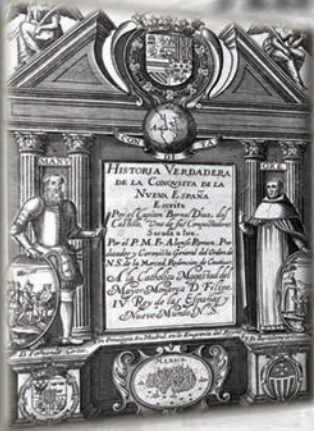 MANV
ORE
HISTORIA VERDADERA
DE LA CONQVISTA DE LA
NVEVA ESPAÑA
Escrita
Por el Capitan Bernal Diaz, del
Castillo, Vno de sus Conquistadores.
Sacada a luz.
Por el P. M. Fr. Alonso Remon, Pre
dicador y Coronista General del Orden de
N. S. de la Merced, Redencion de Cautiuos.
A la Catholica Magestad del
Mayor Monarca D. Felipe
IV Rey de las Españas y
Nueuo Mundo N. S.
en Madrid en la Emprenta del
MEXICO